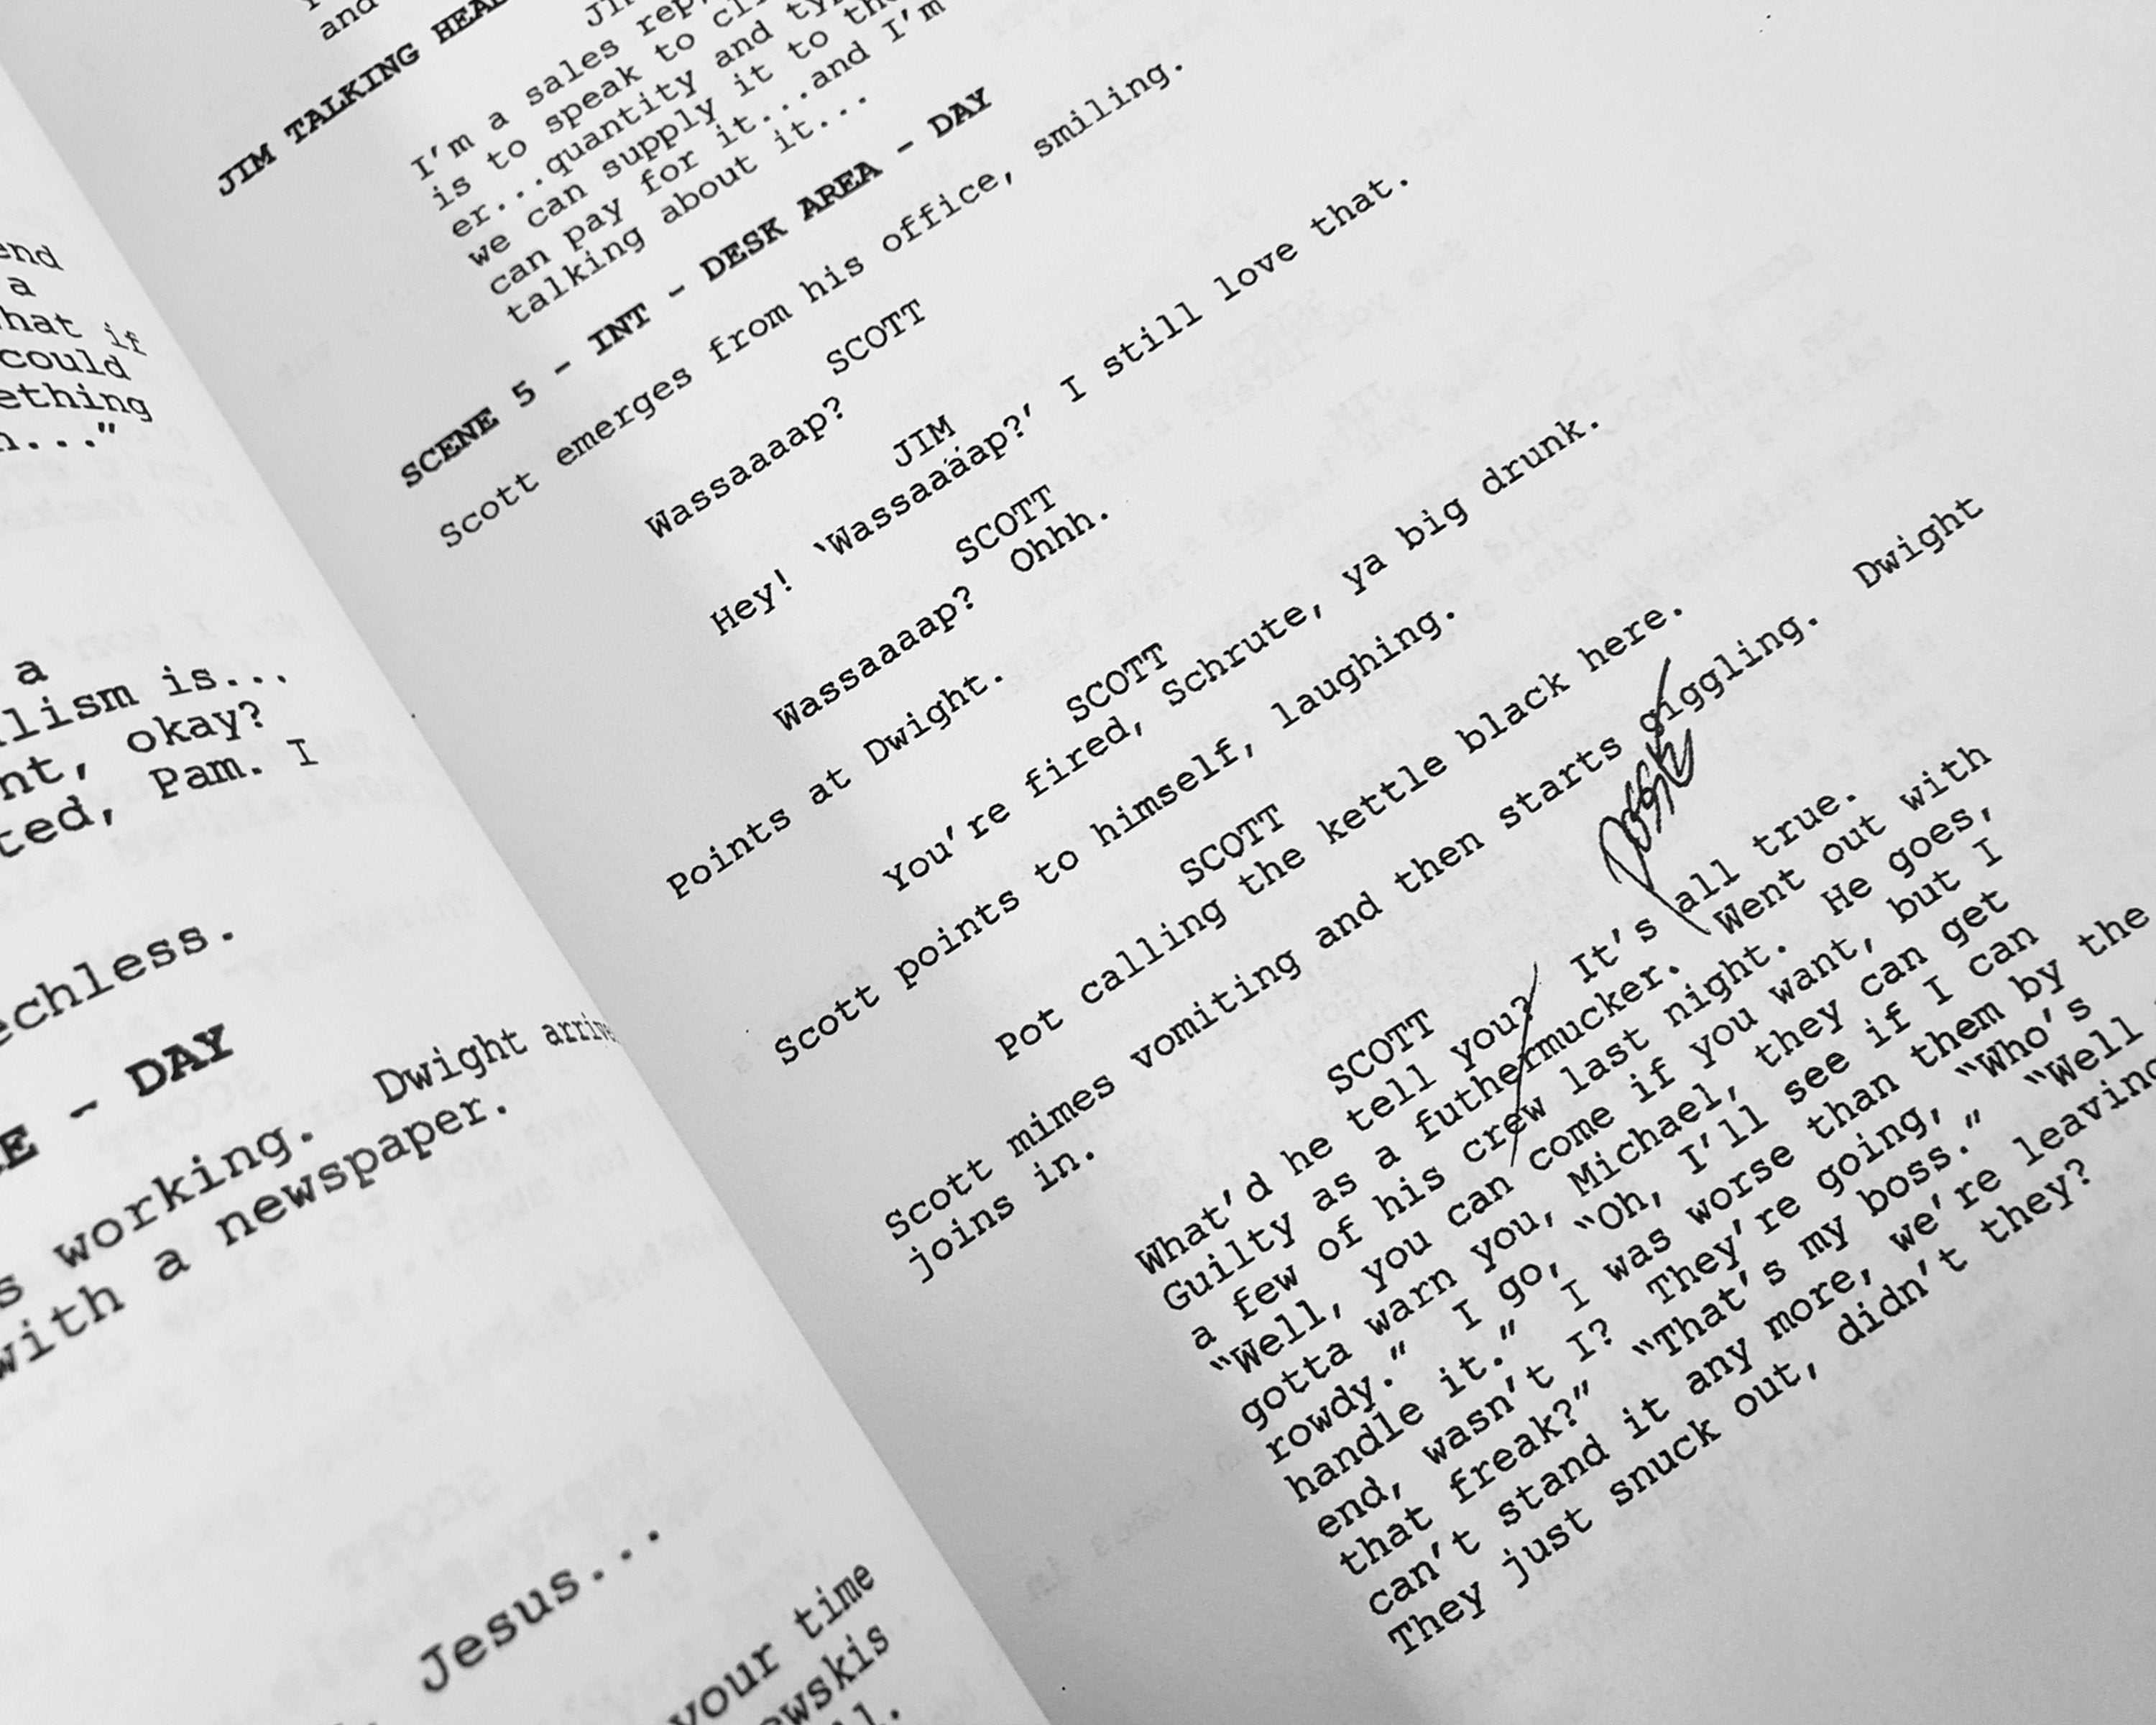 end
a
hat if
could
ething
n..."
a
lism is...
nt, okay?
ted, Pam. I
echless.
E - DAY
s working. Dwight arrive
with a newspaper.
Jesus...
your time
ewskis
ll.
and
JIM TALKING HEAD
I'm a sales rep
is to speak to cli
er...quantity and typ
we can supply it to the
can pay for it...and I'm
talking about it...
SCENE 5 - INT - DESK AREA - DAY
Scott emerges from his office, smiling.
SCOTT
Wassaaaap?
JIM
Hey! 'Wassaaaap?' I still love that.
SCOTT
Wassaaaap? Ohhh.
Points at Dwight.
SCOTT
You're fired, Schrute, ya big drunk.
Scott points to himself, laughing.
SCOTT
Pot calling the kettle black here.
Scott mimes vomiting and then starts giggling. Dwight
joins in.
SCOTT
What'd he tell you? It's all true.
Guilty as a futhermucker. Went out with
a few of his crew last night. He goes,
"Well, you can come if you want, but I
gotta warn you, Michael, they can get
rowdy." I go, "Oh, I'll see if I can
handle it." I was worse than them by the
end, wasn't I? They're going, "Who's
that freak?" "That's my boss." "Well
can't stand it any more, we're leaving
They just snuck out, didn't they?